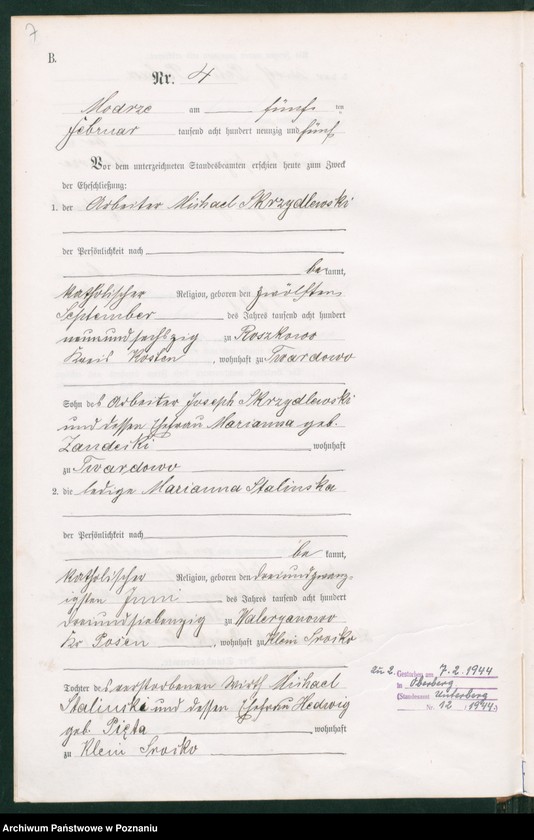 7
B.
Nr. 4
Modrze am fünften
Februar tausend acht hundert neunzig und fünf
Vor dem unterzeichneten Standesbeamten erschien heute zum Zweck
der Eheschließung:
1. der Arbeiter Michael Skrzydlewski
der Persönlichkeit nach
bekannt,
katholischer Religion, geboren den zwölften
September des Jahres tausend acht hundert
neunundsechszig zu Roszkowo
Kreis Kosten, wohnhaft zu Twardowo
Sohn des Arbeiter Joseph Skrzydlewski
und dessen Ehefrau Marianna geb.
wohnhaft
zu Twardowo
2. die ledige Marianna Stalinska
der Persönlichkeit nach
bekannt,
katholischer Religion, geboren den dreiundzwanz-
igsten Juni des Jahres tausend acht hundert
dreiundsiebenzig zu Waleryanowo
Kr Posen, wohnhaft zu Klein Srocko
Tochter des verstorbenen Wirth Michael
Stalinski und dessen Ehefrau Hedwig
geb. wohnhaft
zu Klein Srocko
zu 2. Gestorben am 7.2.1944
in Oberberg
(Standesamt Unterberg
Nr. 12 1944.)
Archiwum Państwowe w Poznaniu